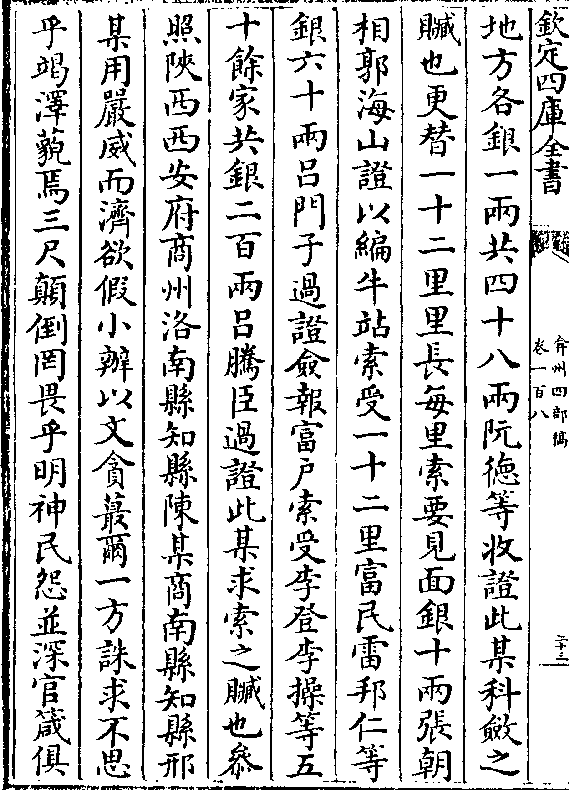 欽定四庫全書
弇州四部稿
卷一百八
二十三
地方各銀一兩共四十八兩阮徳等收證此某科斂之
贓也更替一十二里里長每里索要見面銀十兩張朝
相郭海山證以編牛站索受一十二里富民雷邦仁等
銀六十兩吕門子過證僉報富户索受李登李操等五
十餘家共銀二百兩吕騰臣過證此某求索之贓也叅
照陜西西安府商州洛南縣知縣陳某商南縣知縣邢
某用嚴威而濟欲假小辦以文貪蕞爾一方誅求不思
乎竭澤藐焉三尺顛倒罔畏乎明神民怨並深官箴俱